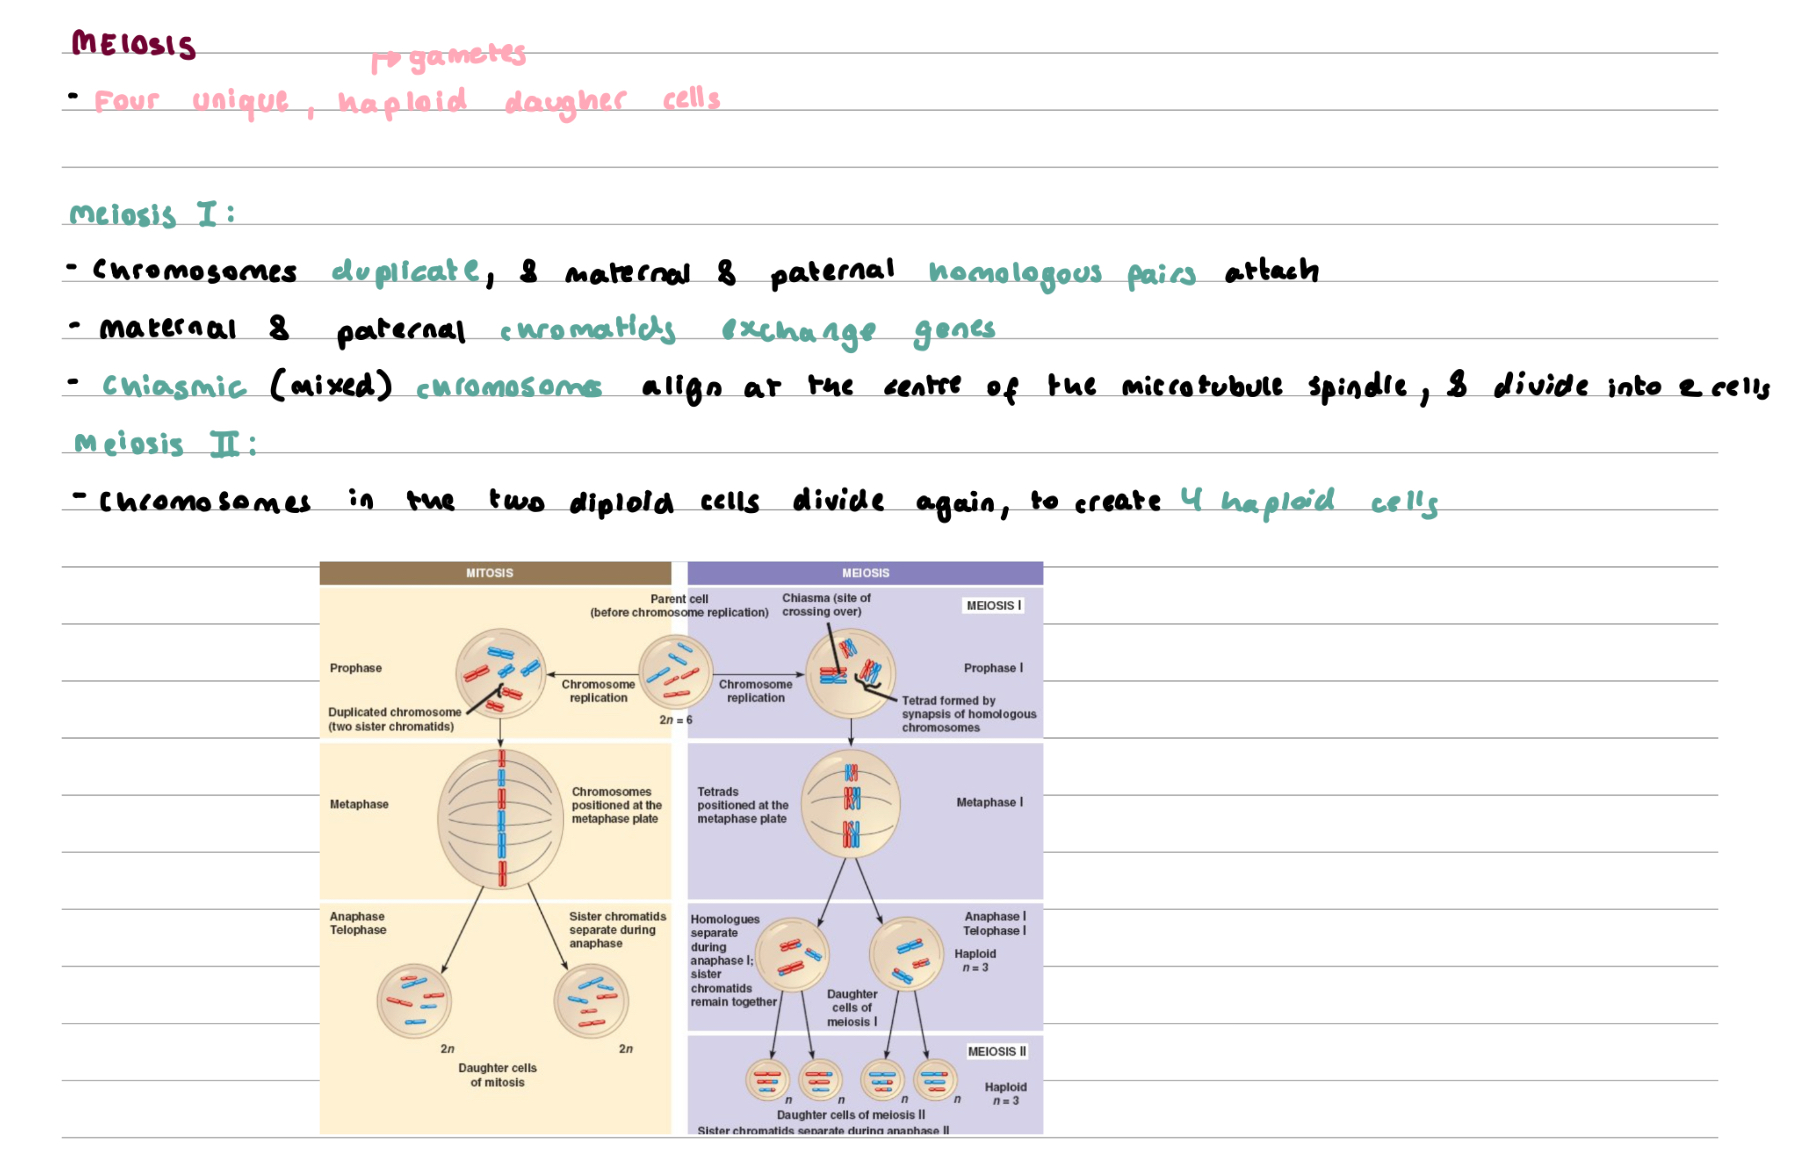 MEIOSIS
↱ gametes
- Four unique, haploid daugher cells
Meiosis I:
- Chromosomes duplicate, & maternal & paternal homologous pairs attach
- Maternal & paternal chromatids exchange genes
- Chiasmic (mixed) chromosomes align at the centre of the microtubule spindle, & divide into 2 cells
Meiosis II:
- Chromosomes in the two diploid cells divide again, to create 4 haploid cells
MITOSIS
MEIOSIS
Parent cell
(before chromosome replication)
Chiasma (site of
crossing over)
MEIOSIS I
Prophase
Prophase I
Chromosome
replication
Chromosome
replication
Duplicated chromosome
(two sister chromatids)
2n = 6
Tetrad formed by
synapsis of homologous
chromosomes
Metaphase
Chromosomes
positioned at the
metaphase plate
Tetrads
positioned at the
metaphase plate
Metaphase I
Anaphase
Telophase
Sister chromatids
separate during
anaphase
Homologues
separate
during
anaphase I;
sister
chromatids
remain together
Anaphase I
Telophase I
Haploid
n = 3
Daughter
cells of
meiosis I
2n
2n
Daughter cells
of mitosis
MEIOSIS II
n
n
n
n
Haploid
n = 3
Daughter cells of meiosis II
Sister chromatids separate during anaphase II